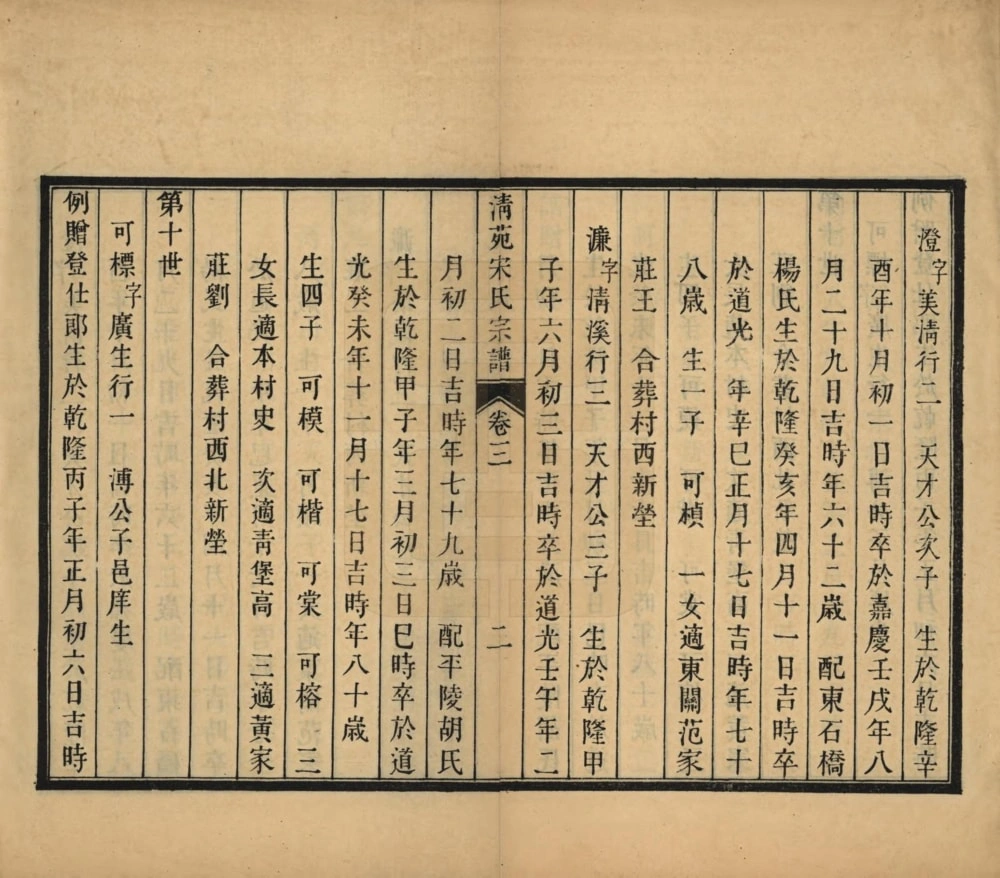 澄字美清行二　天才公次子　生於乾隆辛
酉年十月初一日吉時卒於嘉慶壬戌年八
月二十九日吉時年六十二歲　配東石橋
楊氏生於乾隆癸亥年四月十一日吉時卒
於道光　年辛巳正月十七日吉時年七十
八歲　生一子　可楨　一女適東關范家
莊王　合葬村西新塋
濂字清溪行三　天才公三子　生於乾隆甲
子年六月初三日吉時卒於道光壬午年二
清苑宋氏宗譜　卷三　二
月初二日吉時年七十九歲　配平陵胡氏
生於乾隆甲子年三月初三日巳時卒於道
光癸未年十一月十七日吉時年八十歲
生四子　可模　可楷　可棠　可榕　三
女長適本村史　次適靑堡高　三適黃家
莊劉　合葬村西北新塋
第十世
可標字廣生行一　溥公子邑庠生
例贈登仕郎生於乾隆丙子年正月初六日吉時